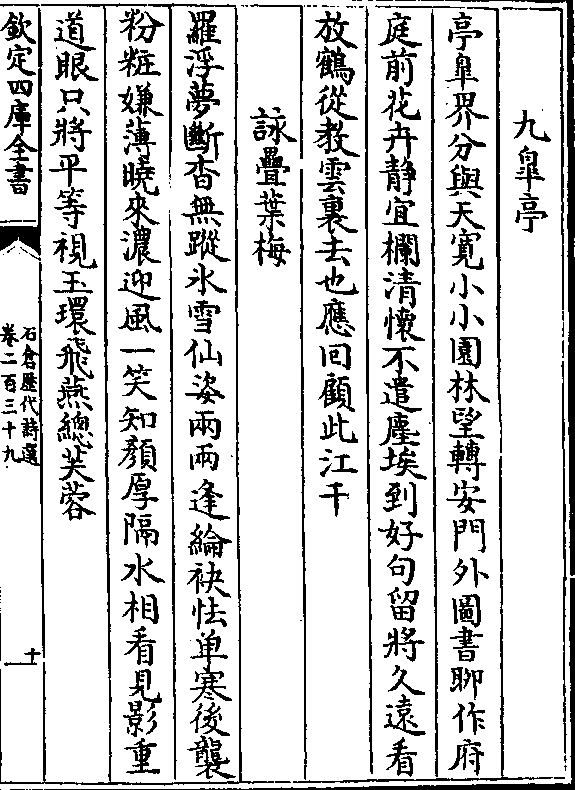 九臯亭
亭臯界分與天寛小小園林望轉安門外圖書聊作府
庭前花卉靜宜欄清懷不遣塵埃到好句留將久遠看
放鶴從教雲裏去也應回顧此江干
詠疊葉梅
羅浮夢斷杳無蹤氷雪仙姿兩兩逢綸袂怯单寒後襲
粉粧嫌薄曉來濃迎風一笑知顔厚隔水相看見影重
道眼只將平等視玉環飛燕總芙蓉
欽定四庫全書
石倉歴代詩選
卷二百三十九
十